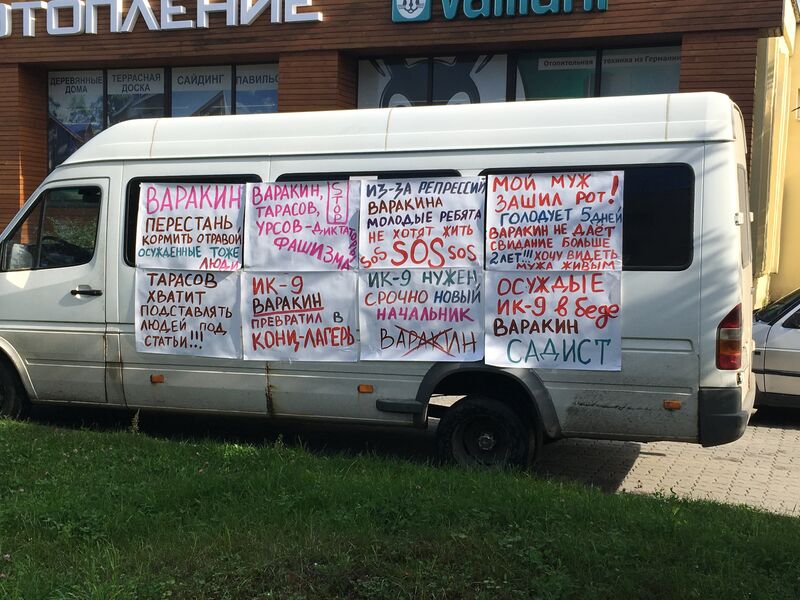 ОТОПЛЕНИЕ
Vaillant
ДЕРЕВЯННЫЕ
ДОМА
ТЕРРАСНАЯ
ДОСКА
САЙДИНГ
Отопительная
техника из Германии
ВАРАКИН
ПЕРЕСТАНЬ,
КОРМИТЬ ОТРАВОЙ
ОСУЖДЕННЫЕ ТОЖЕ
ЛЮДИ
ВАРАКИН,
ТАРАСОВ,
УРСОВ-ДИКТАТОРЫ
ФАШИЗМА
STOP
ИЗ-ЗА РЕПРЕССИЙ
ВАРАКИНА
МОЛОДЫЕ РЕБЯТА
НЕ ХОТЯТ ЖИТЬ
SOS SOS SOS
МОЙ МУЖ
ЗАШИЛ РОТ!
ГОЛОДУЕТ 5 ДНЕЙ
ВАРАКИН НЕ ДАЁТ
СВИДАНИЕ БОЛЬШЕ
2 ЛЕТ!!! ХОЧУ ВИДЕТЬ
МУЖА ЖИВЫМ
ТАРАСОВ
ХВАТИТ
ПОДСТАВЛЯТЬ
ЛЮДЕЙ ПОД
СТАТЬИ!!!
ИК-9
ВАРАКИН
ПРЕВРАТИЛ В
КОНЦ-ЛАГЕРЬ
ИК-9 НУЖЕН,
СРОЧНО НОВЫЙ
НАЧАЛЬНИК
ВАРАКИН
ОСУЖДЫЕ
ИК-9 В БЕДЕ
ВАРАКИН
САДИСТ